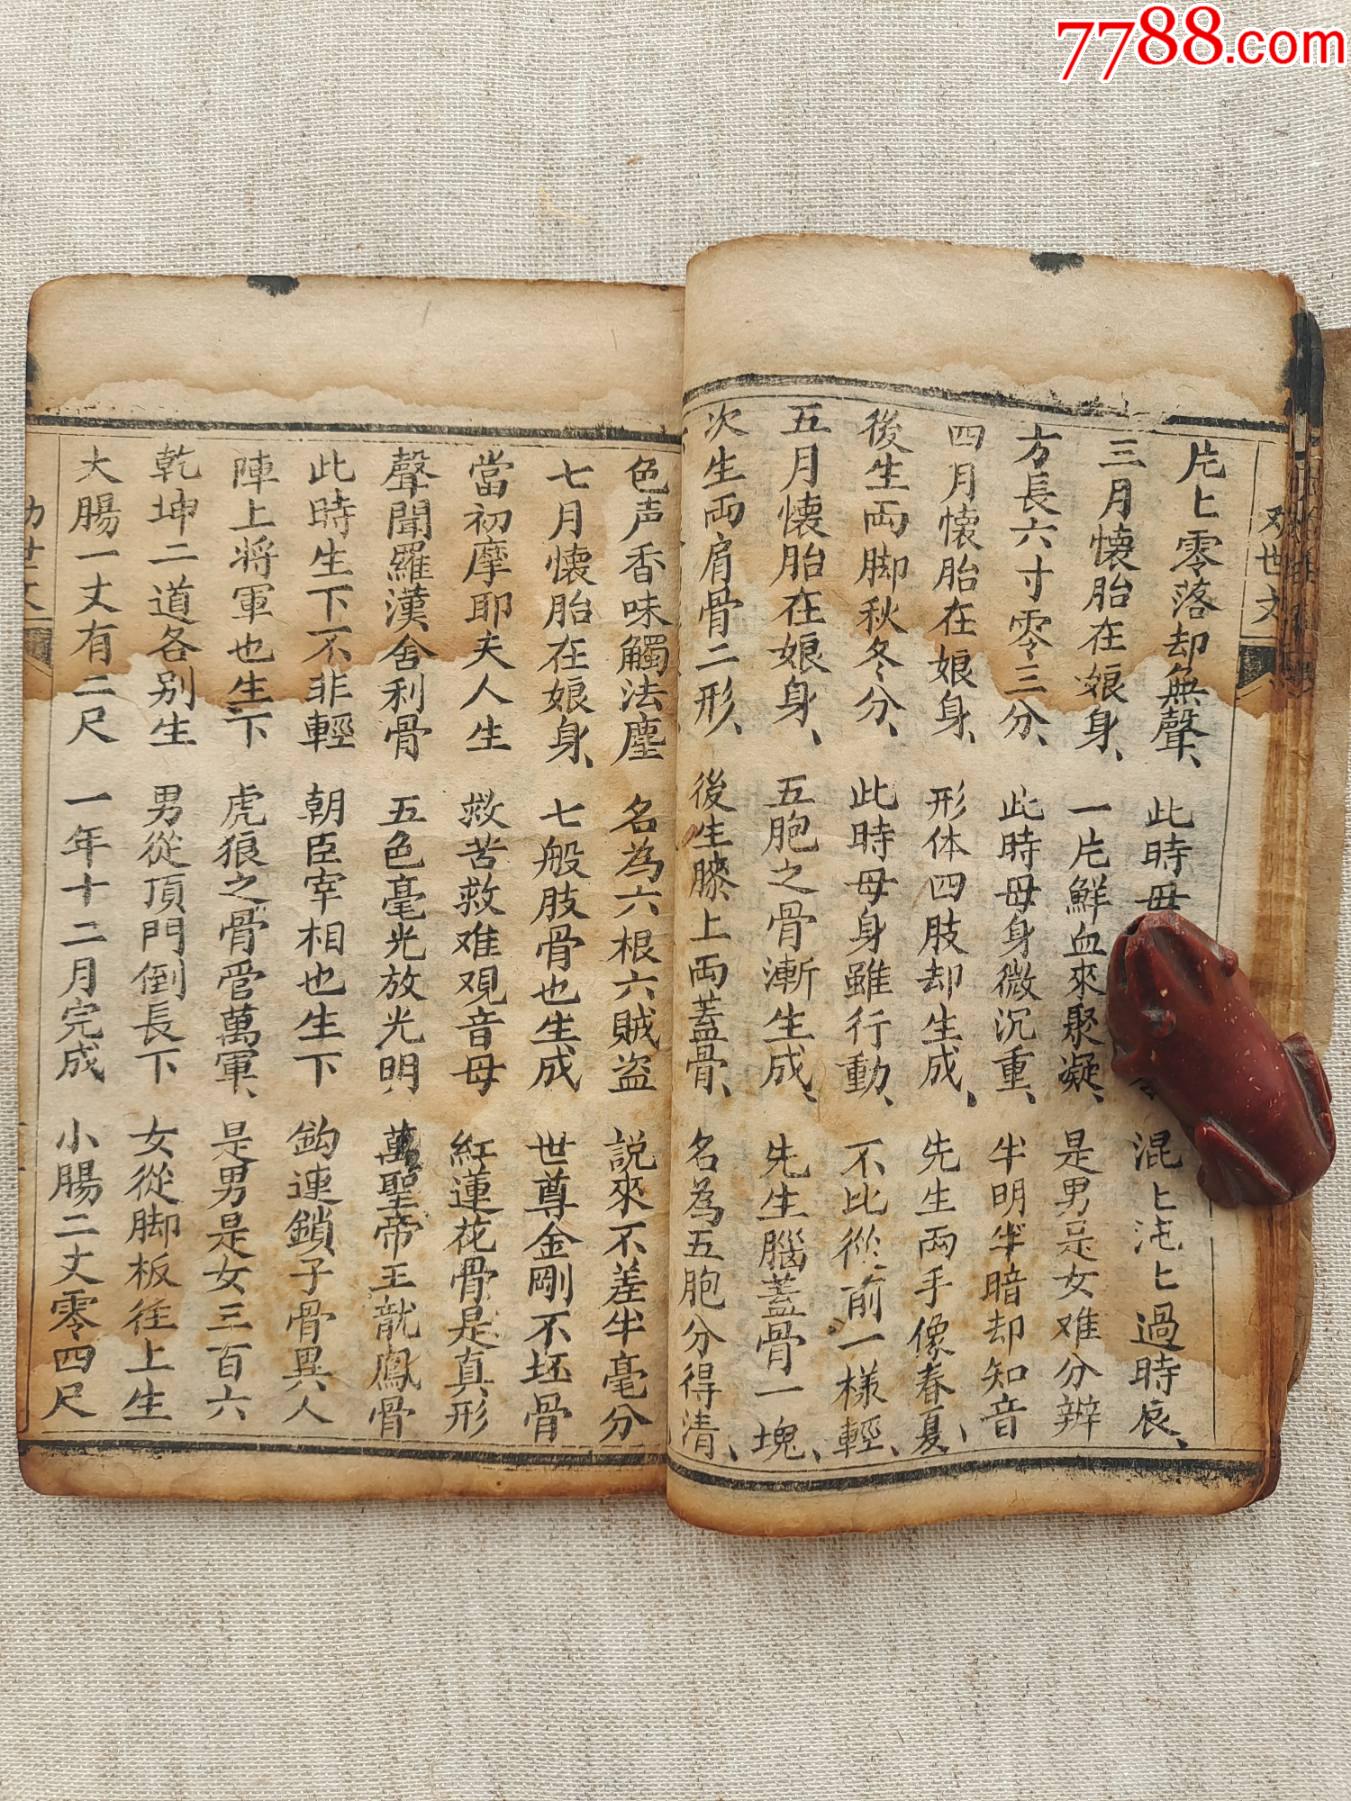 7788.com
片〻零落却無聲、此時母 混〻沌〻過時辰、
三月懷胎在娘身、一片鮮血來聚凝、是男是女难分辨
方長六寸零三分、此時母身微沉重、半明半暗却知音
四月懷胎在娘身、形体四肢却生成、先生兩手像春夏、
後生両脚秋冬分、此時母身雖行動、不比從前一樣輕、
五月懷胎在娘身、五胞之骨漸生成、先生腦蓋骨一塊、
次生両肩骨二形、後生膝上両蓋骨、名為五胞分得清、
色声香味觸法塵 名為六根六賊盗 説來不差半毫分
七月懷胎在娘身、七般肢骨也生成 世尊金剛不坯骨
當初摩耶夫人生 救苦救难观音母 紅蓮花骨是真形
聲聞羅漢舍利骨 五色毫光放光明 萬聖帝王龍鳳骨
此時生下不非輕 朝臣宰相也生下 鈎連鎖子骨異人
陣上将軍也生下 虎狼之骨管萬軍、是男是女三百六
乾坤二道各别生 男從頂門倒長下 女從脚板往上生
大腸一丈有二尺 一年十二月完成 小腸二丈零四尺
世文